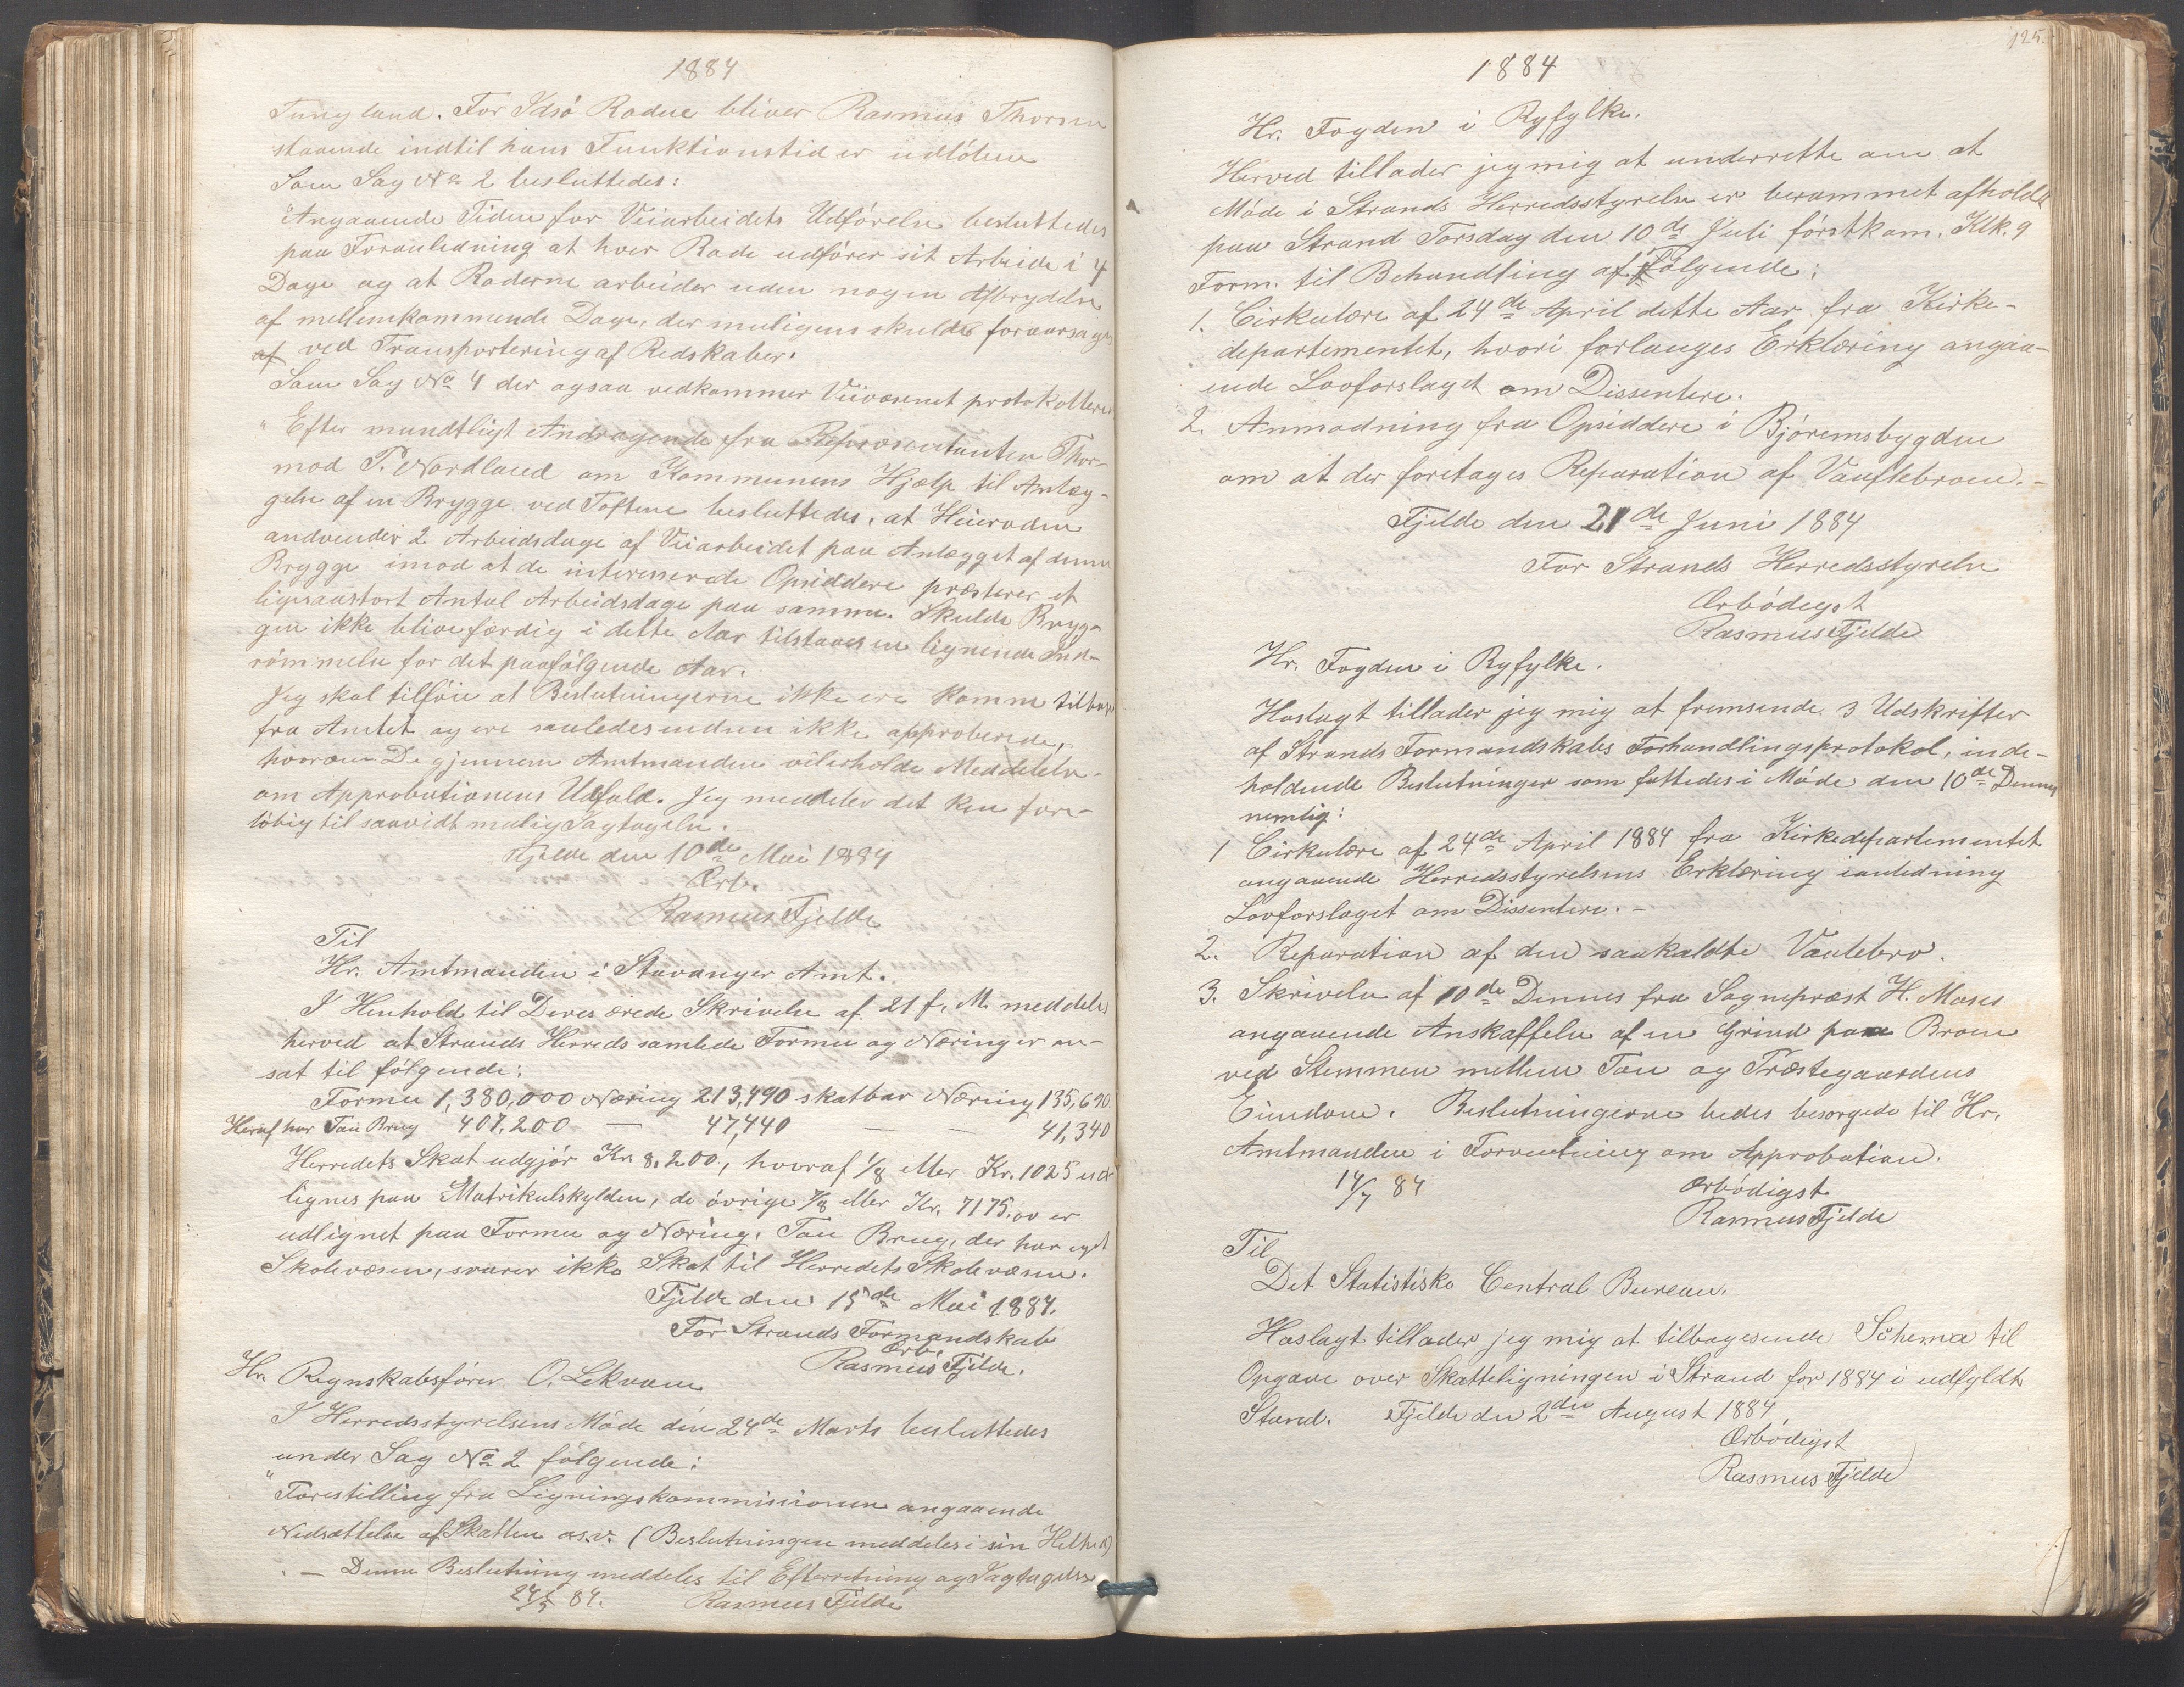 1884
Tungland. For Idsö Rode bliver Rasmus Thorsen
staaende indtil hans Funktionstid er udlöben
Som Sag No 2 besluttedes:
"Angaaende Tiden for Veiarbeidets Udförelse besluttedes
paa Foranledning at hver Rode udförer sit Arbeide i 4
Dage og at Roderne arbeider uden nogen Afbrydelse
af mellemkommende Dage, der muligens skulde foraarsages
af ved Transportering af Redskaber.
Som Sag No 4 der ogsaa vedkommer Veivæsenet protokolleres
"Efter mundtligt Andragende fra Repræsentanten Thor-
mod P. Nordland om Kommunens Hjælp til Anlæg-
gelse af en Brygge ved Toftene besluttedes, at Heieroden
anvender 2 Arbeidsdage af Veiarbeidet paa Anlægget af denne
Brygge imod at de interesserede Opsiddere præsterer et
ligesaastort Antal Arbeidsdage paa samme. Skulde Bryg-
gen ikke blive færdig i dette Aar tilstaaes en lignende Ind-
römmelse for det paafölgende Aar.
Jeg skal tilföie at Beslutningerne ikke ere komne tilbage
fra Amtet og ere saaledes endnu ikke approberede,
hvorom De gjennem Amtmanden vil erholde Meddelelse
om Approbationens Udfald. Jeg meddeler det kun fore-
löbig til saavidt mulig Iagtagelse.
Fjelde den 10de Mai 1884
Ærb.
Rasmus Fjelde
Til
Hr. Amtmanden i Stavanger Amt.
I Henhold til Deres ærede Skrivelse af 21 f. M. meddeles
herved at Strands Herreds samlede Formue og Næring er an-
sat til fölgende:
Formue 1,380,000 Næring 213,490 skatbar Næring 135,690.
Heraf har Tau Brug 407,200 — 47,440 — — 41,340
Herredets Skat udgjör Kr. 8,200, hvoraf 1/8 eller Kr. 1025 ud-
lignes paa Matrikulskylden, de övrige 7/8 eller Kr. 7175.00 er
udlignet paa Formue og Næring. Tau Brug, der har eget
Skolevæsen, svarer ikke Skat til Herredets Skolevæsen.
Fjelde den 15de Mai 1884.
For Strands Formandskab
Ærb.
Rasmus Fjelde.
Hr. Regnskabsförer O. Lekvam
I Herredsstyrelsens Möde den 24de Marts besluttedes
under Sag No 2 fölgende:
"Forestilling fra Ligningskommissionen angaaende
Nedsættelse af Skatten os.v. (Beslutningen meddeles i sin Helhed)
. — Denne Beslutning meddeles til Efterretning og Iagtagelse
24/5 84. Rasmus Fjelde
125.
1884
Hr. Fogden i Ryfylke.
Herved tillader jeg mig at underrette om at
Möde i Strands Herredsstyrelse er berammet afholdt
paa Strand Torsdag den 10de Juli förstkom. Klk. 9
Form. til Behandling af Fölgende:
1. Cirkulære af 24de April dette Aar fra Kirke-
departementet, hvori forlanges Erklæring angaa-
ende Lovforslaget om Dissentere.
2. Anmodning fra Opsiddere i Björemsbygden
om at der foretages Reparation af Vautlebroen. -
Fjelde den 21de Juni 1884
For Strands Herredsstyrelse
Ærbödigst
Rasmus Fjelde
Hr. Fogden i Ryfylke.
Hoslagt tillader jeg mig at fremsende 3 Udskrifter
af Strands Formandskabs Forhandlingsprotokol, inde-
holdende Beslutninger som fattedes i Möde den 10de Dennes
nemlig:
1 Cirkulære af 24de April 1884 fra Kirkedepartementet
angaaende Herredsstyrelsens Erklæring i anledning
Lovforslaget om Dissentere. -
2. Reparation af den saakaldte Vautlebro.
3. Skrivelse af 10de Dennes fra Sognepræst H. Moses
angaaende Anskaffelse af en Grind paa Broen
ved Stemmen mellem Tau og Præstegaardens
Eiendom. Beslutningerne bedes besorgede til Hr.
Amtmanden i Forventning om Approbation.
14/7 84 Ærbödigst
Rasmus Fjelde
Til
Det Statistiske Central Bureau.
Hoslagt tillader jeg mig at tilbagesende Schema til
Opgave over Skatteligningen i Strand for 1884 i udfyldt
Stand. Fjelde den 2den August 1884
Ærbödigst
Rasmus Fjelde